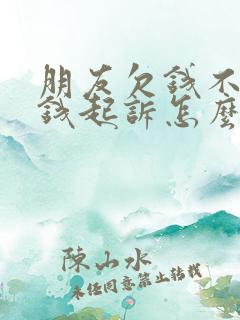 朋友欠錢不
錢起訴怎麼
陳山水
未任同意禁止轉載